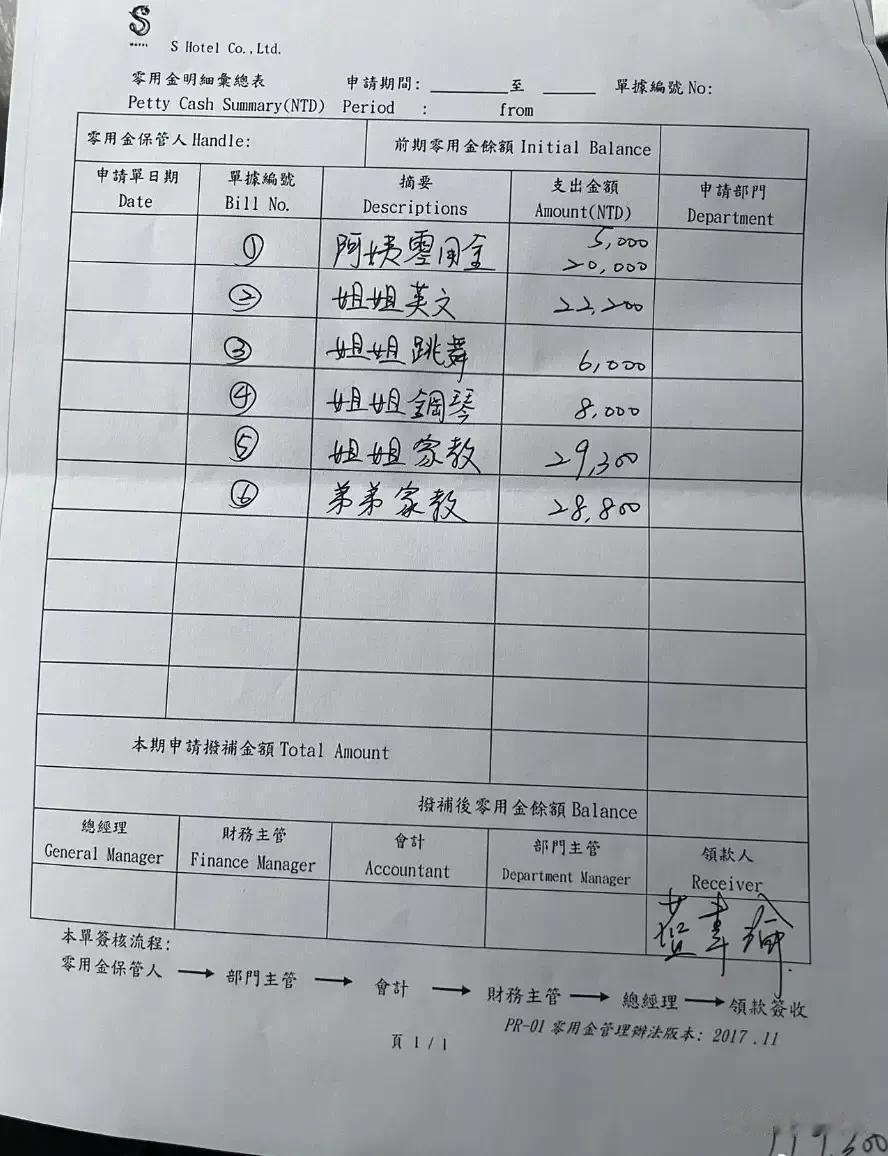 S
HOTEL
S Hotel Co.,Ltd.
零用金明細彙總表 申請期間: 至 單據編號 No:
Petty Cash Summary(NTD) Period : from
零用金保管人 Handle: 前期零用金餘額 Initial Balance
申請單日期 單據編號 摘要 支出金額 申請部門
Date Bill No. Descriptions Amount(NTD) Department
① 阿姨零用金 5,000
20,000
② 姐姐英文 22,200
③ 姐姐跳舞 6,000
④ 姐姐鋼琴 8,000
⑤ 姐姐家教 29,300
⑥ 弟弟家教 28,800
本期申請撥補金額 Total Amount
撥補後零用金餘額 Balance
總經理 財務主管 會計 部門主管 領款人
General Manager Finance Manager Accountant Department Manager Receiver
本單簽核流程:
零用金保管人 → 部門主管 → 會計 → 財務主管 → 總經理 → 領款簽收
PR-01 零用金管理辦法版本: 2017.11
頁 1 / 1